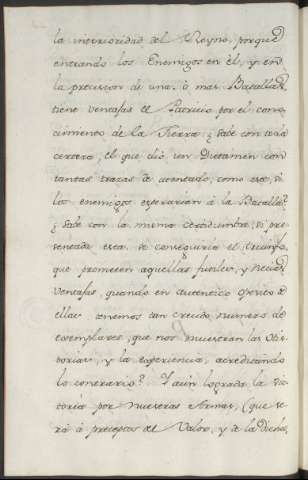 la interioridad del Reyno, porque
entrando los Enemigos en èl, y en
la precission de una ò mas Batallas,
tiene ventajas el Patricio por el cono-
cimiento de la Tierra; ¿Sabe con toda
certeza, el que diò un Dictamen con
tantas trazas de acertado, como era, si
los enemigos esperarian à la Batalla?
¿Sabe con la misma certidumbre, si pre-
sentada esta se conseguiria el triunfo,
que prometen aquellas fuiles, y
Ventajas, quando en autentico de
ellas tenemos tan crecido numero de
exemplares, que nos muestran las His-
torias, y la experiencia, acreditando
lo contrario? Y aún lograda la Vic-
toria por nuestras Armas, (que se-
rà à preceptos del Valor, y de la Dicha,